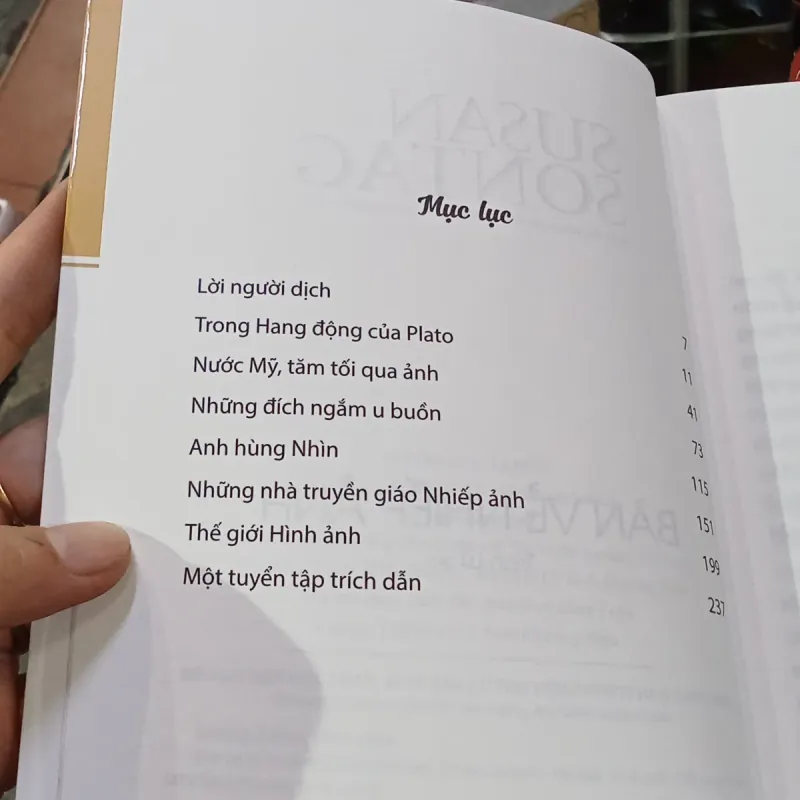 SUSAN
SONTAG
Mục lục
Lời người dịch 7
Trong Hang động của Plato 11
Nước Mỹ, tăm tối qua ảnh 41
Những đích ngắm u buồn 73
Anh hùng Nhìn 115
Những nhà truyền giáo Nhiếp ảnh 151
Thế giới Hình ảnh 199
Một tuyển tập trích dẫn 237
BÀN VỀ NHIẾP ẢNH